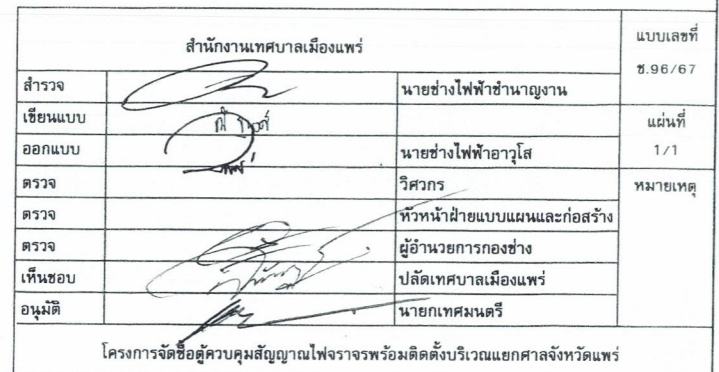 สำนักงานเทศบาลเมืองแพร่
แบบเลขที่
ช.96/67
สำรวจ นายช่างไฟฟ้าชำนาญงาน
เขียนแบบ
แผ่นที่
ออกแบบ นายช่างไฟฟ้าอาวุโส
1/1
ตรวจ วิศวกร
หมายเหตุ
ตรวจ หัวหน้าฝ่ายแบบแผนและก่อสร้าง
ตรวจ ผู้อำนวยการกองช่าง
เห็นชอบ ปลัดเทศบาลเมืองแพร่
อนุมัติ นายกเทศมนตรี
โครงการจัดซื้อตู้ควบคุมสัญญาณไฟจราจรพร้อมติดตั้งบริเวณแยกศาลจังหวัดแพร่